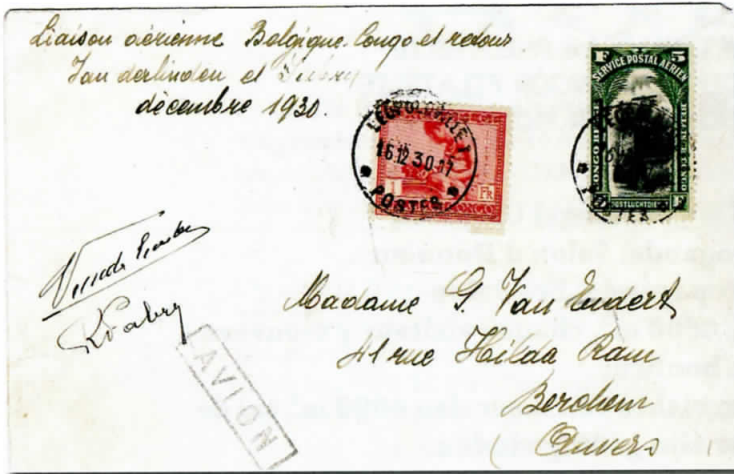 Liaison aérienne Belgique-Congo et retour
Van derlinden et Fabry
décembre 1930.
LEOPOLDVILLE 1
16.12.30.17
POSTES
1 Fr.
CONGO
F 5
SERVICE POSTAL AERIEN
CONGO BELGE
POSTLUCHTDIENST
F
POSTES
Fabry
AVION
Madame G. Van
41 rue Hilda Ram
Berchem
(Anvers